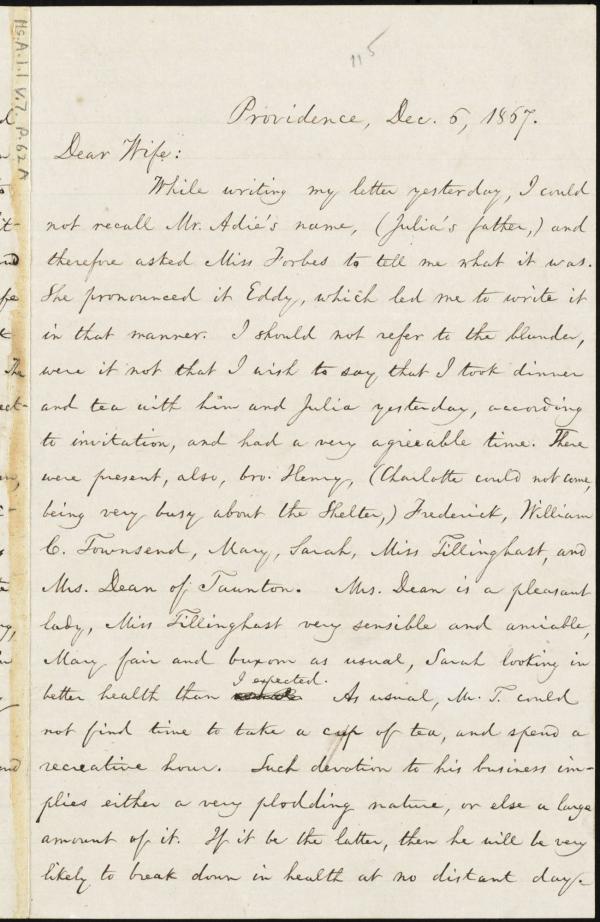 115
Ms. A. 1. 1 v. 7, p. 62A
Providence, Dec. 5, 1867.
Dear Wife:
While writing my letter yesterday, I could
not recall Mr. Adie's name, (Julia's father,) and
therefore asked Miss Forbes to tell me what it was.
She pronounced it Eddy, which led me to write it
in that manner. I should not refer to the blunder,
were it not that I wish to say that I took dinner
and tea with him and Julia yesterday, according
to invitation, and had a very agreeable time. There
were present, also, bro. Henry, (Charlotte could not come,
being very busy about the Shelter,) Frederick, William
C. Townsend, Mary, Sarah, Miss Tillinghast, and
Mrs. Dean of Taunton. Mrs. Dean is a pleasant
lady, Miss Tillinghast very sensible and amiable,
Mary fair and buxom as usual, Sarah looking in
better health than I expected. As usual, Mr. T. could
not find time to take a cup of tea, and spend a
recreative hour. Such devotion to his business im-
plies either a very plodding nature, or else a large
amount of it. If it be the latter, then he will be very
likely to break down in health at no distant day.